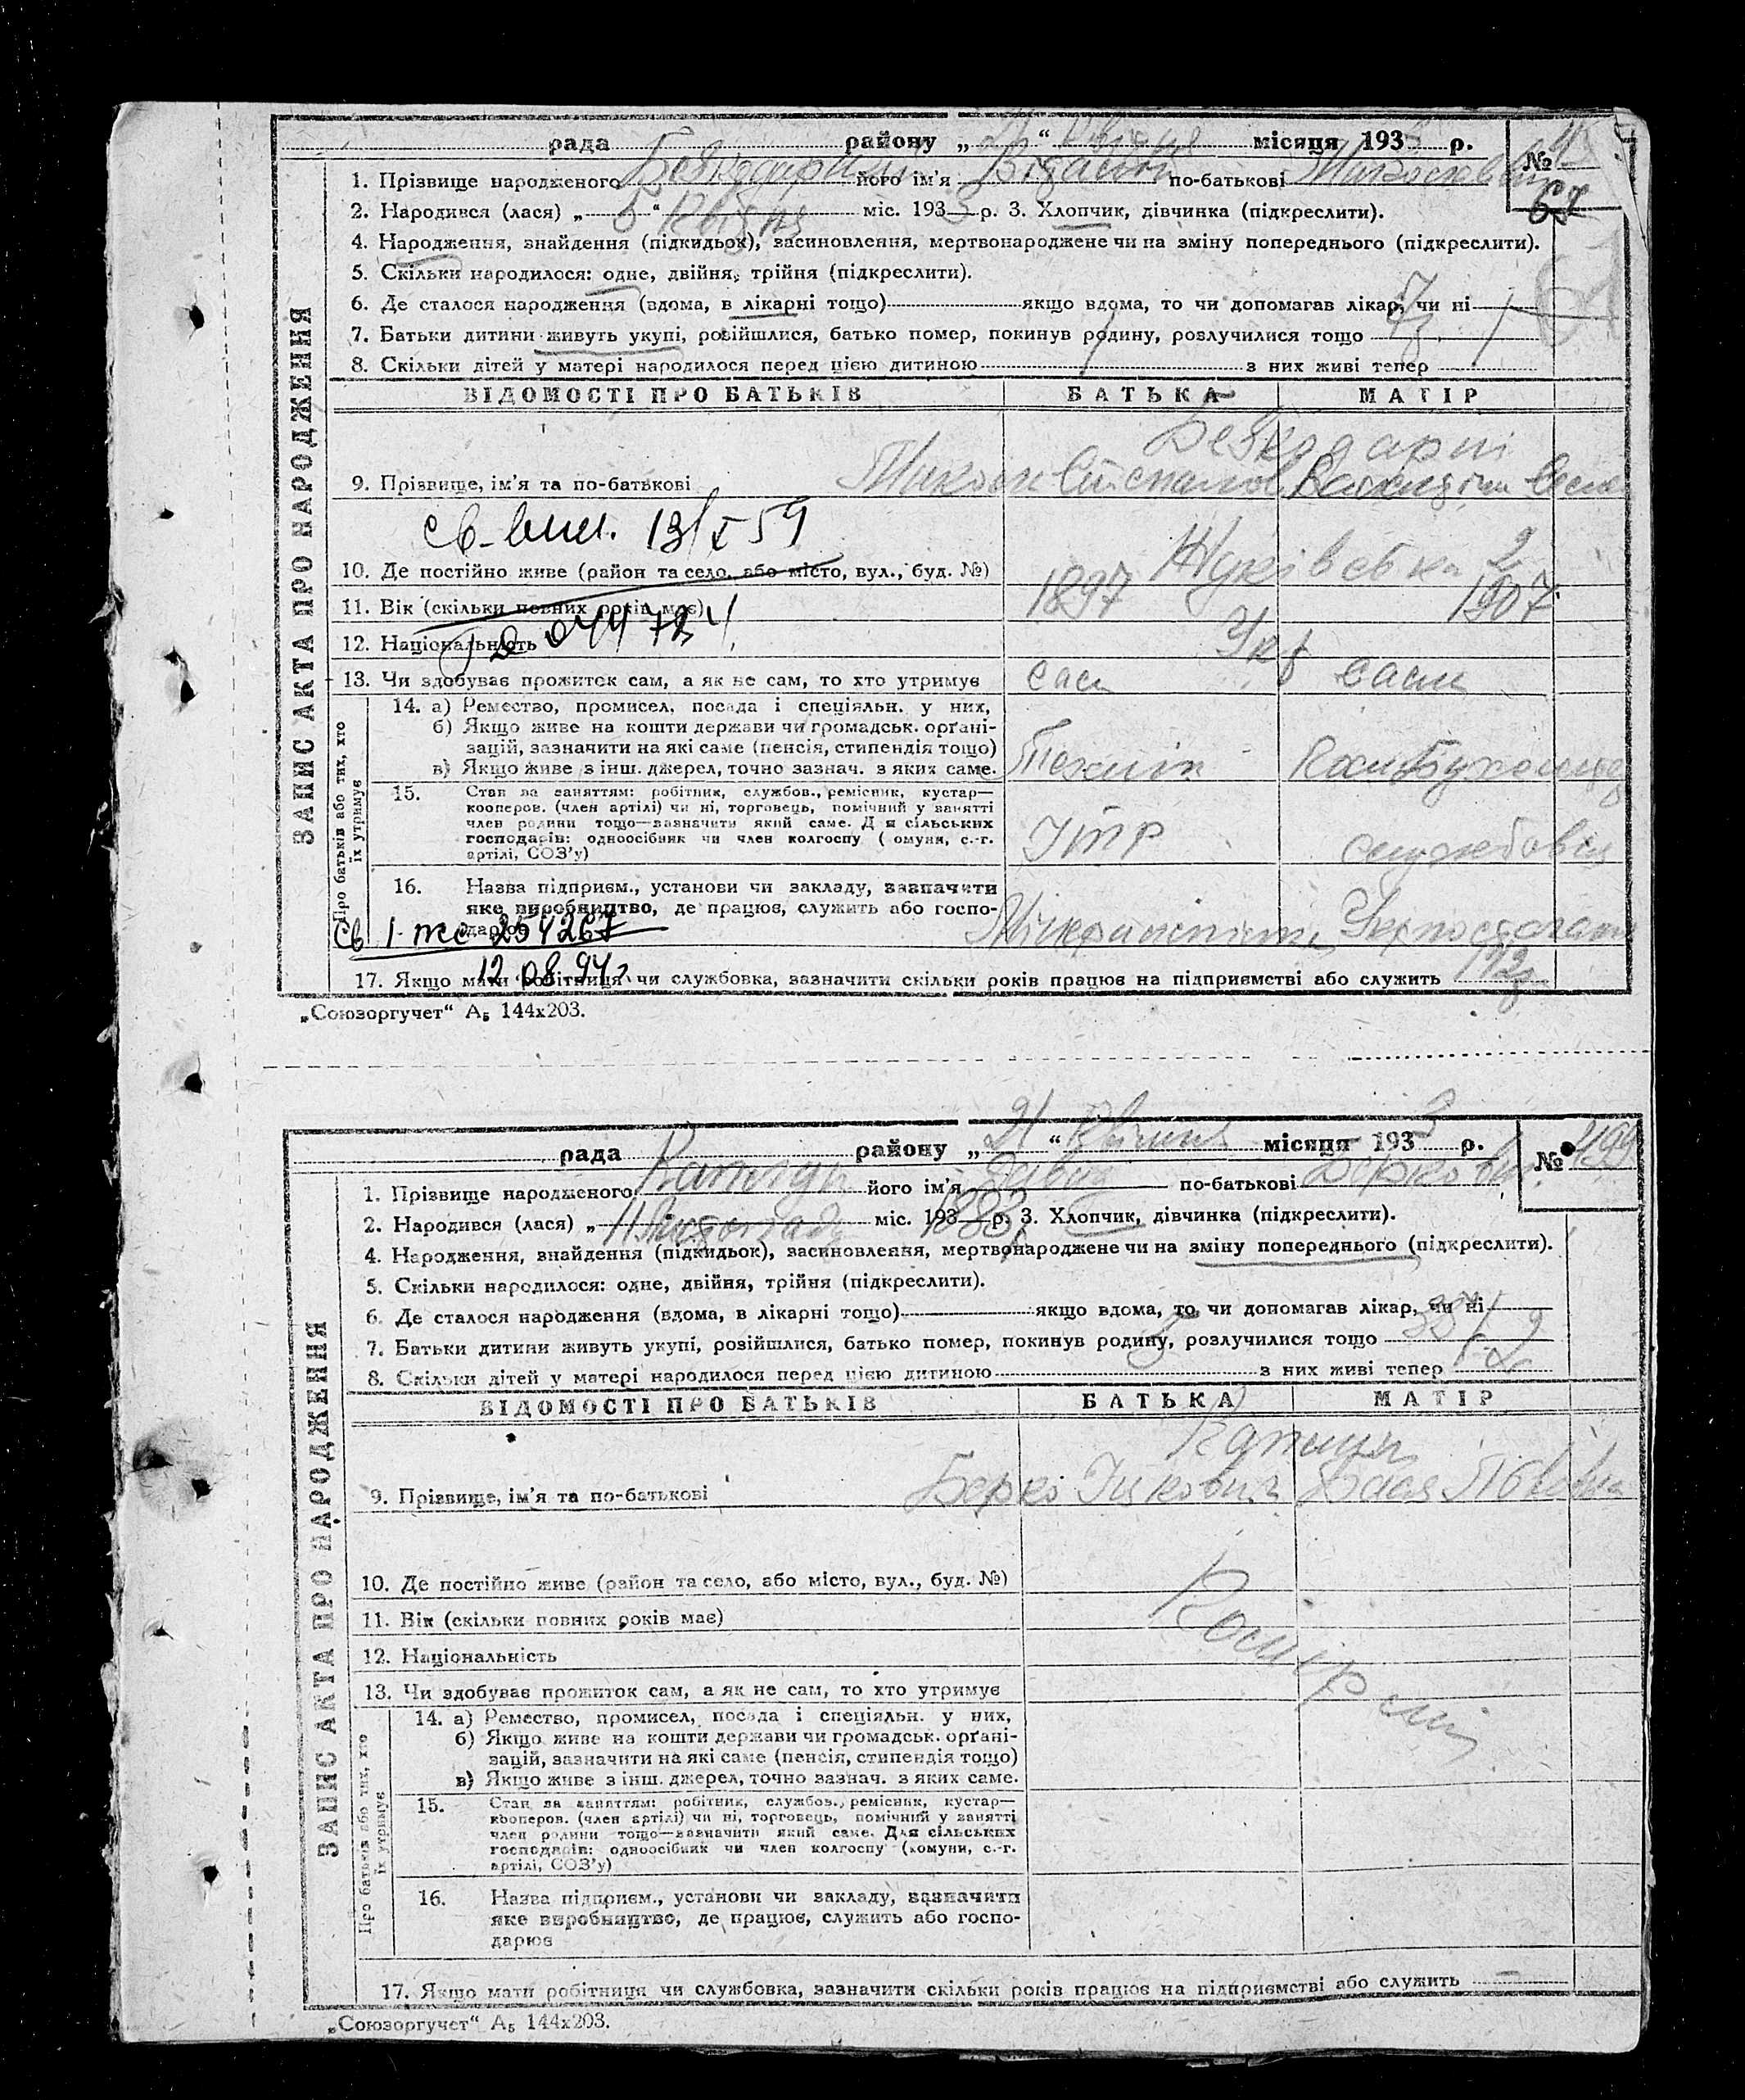 рада района „21“ Квітня місяця 1933 р.
№
67
1. Прізвище народженого його ім'я Віталій по-батькові Миколаєвич
2. Народився (лася) „5“ Квітня міс. 1933 р. 3. Хлопчик, дівчинка (підкреслити).
4. Народження, знайдення (підкидьок), засиновлення, мертвонароджене чи на зміну попереднього (підкреслити).
5. Скільки народилося: одне, двійня, трійня (підкреслити).
6. Де сталося народження (вдома, в лікарні тощо) якщо вдома, то чи допомагав лікар, чи ні
7. Батьки дитини живуть укупі, розійшлися, батько помер, покинув родину, розлучилися тощо
8. Скільки дітей у матері народилося перед цією дитиною з них живі тепер
ЗАПИС АКТА ПРО НАРОДЖЕННЯ
ВІДОМОСТІ ПРО БАТЬКІВ БАТЬКА МАТІР
9. Прізвище, ім'я та по-батькові
10. Де постійно живе (район та село, або місто, вул., буд. №)
11. Вік (скільки повних років має) 1897 1907
12. Національність Укр
13. Чи здобуває прожиток сам, а як не сам, то хто утримує сам сама
Про батьків або тих, хто їх утримує
14. а) Ремество, промисел, посада і спеціяльн. у них,
б) Якщо живе на кошти держави чи громадськ. орґані-
зацій, зазначити на які саме (пенсія, стипендія тощо)
в) Якщо живе з інш. джерел, точно зазнач. з яких саме. Технік
15. Стан за заняттям: робітник, службов., ремісник, кустар—
кооперов. (член артілі) чи ні, торговець, помічний у занятті
член родини тощо—зазначити який саме. Д я сільських
господарів: одноосібник чи член колгоспу ( омуни, с.-г.
артілі, СОЗ'у) ІТР службовка
16. Назва підприєм., установи чи закладу, зазначити
яке виробництво, де працює, служить або госпо-
дарює
Св I-тс 254267
12 08 94г
17. Якщо мати робітниця чи службовка, зазначити скільки років працює на підприємстві або служить
„Союзоргучет“ А5 144х203.
рада району „21“ Квітня місяця 1933 р.
№ 1199
1. Прізвище народженого його ім'я Давид по-батькові Беркович
2. Народився (лася) „11“ Листопада міс. 193 р. 3. Хлопчик, дівчинка (підкреслити).
4. Народження, знайдення (підкидьок), засиновлення, мертвонароджене чи на зміну попереднього (підкреслити).
5. Скільки народилося: одне, двійня, трійня (підкреслити).
6. Де сталося народження (вдома, в лікарні тощо) якщо вдома, то чи допомагав лікар, чи ні
7. Батьки дитини живуть укупі, розійшлися, батько помер, покинув родину, розлучилися тощо
8. Скільки дітей у матері народилося перед цією дитиною з них живі тепер
ЗАПИС АКТА ПРО НАРОДЖЕННЯ
ВІДОМОСТІ ПРО БАТЬКІВ БАТЬКА МАТІР
9. Прізвище, ім'я та по-батькові Берко Іцкович
10. Де постійно живе (район та село, або місто, вул., буд. №)
11. Вік (скільки повних років має)
12. Національність
13. Чи здобуває прожиток сам, а як не сам, то хто утримує
Про батьків або тих, хто їх утримує
14. а) Ремество, промисел, посада і спеціяльн. у них,
б) Якщо живе на кошти держави чи громадськ. орґані-
зацій, зазначити на які саме (пенсія, стипендія тощо)
в) Якщо живе з інш. джерел, точно зазнач. з яких саме.
15. Стан за заняттям: робітник, службов., ремісник, кустар—
кооперов. (член артілі) чи ні, торговець, помічний у занятті
член родини тощо—зазначити який саме. Для сільських
господарів: одноосібник чи член колгоспу (комуни, с.-г.
артілі, СОЗ'у)
16. Назва підприєм., установи чи закладу, зазначити
яке виробництво, де працює, служить або госпо-
дарює
17. Якщо мати робітниця чи службовка, зазначити скільки років працює на підприємстві або служить
„Союзоргучет“ А5 144х203.